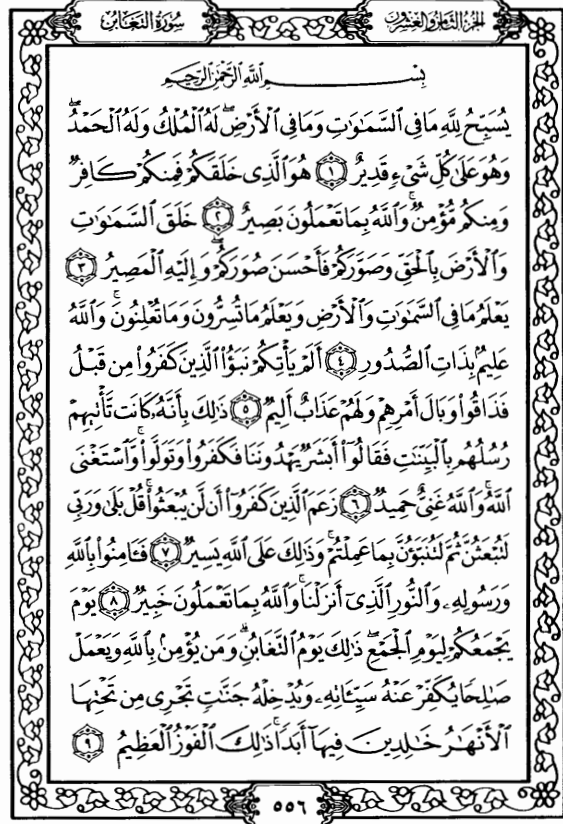 سُورَةُ التَّغَابُنِ
الجُزْءُ الثَّامِنُ وَالعِشْرُونَ
بِسْمِ اللَّهِ الرَّحْمَٰنِ الرَّحِيمِ
يُسَبِّحُ لِلَّهِ مَا فِي السَّمَٰوَٰتِ وَمَا فِي الْأَرْضِ ۖ لَهُ الْمُلْكُ وَلَهُ الْحَمْدُ ۖ
وَهُوَ عَلَىٰ كُلِّ شَيْءٍ قَدِيرٌ ١ هُوَ الَّذِي خَلَقَكُمْ فَمِنكُمْ كَافِرٌ
وَمِنكُم مُّؤْمِنٌ ۚ وَاللَّهُ بِمَا تَعْمَلُونَ بَصِيرٌ ٢ خَلَقَ السَّمَٰوَٰتِ
وَالْأَرْضَ بِالْحَقِّ وَصَوَّرَكُمْ فَأَحْسَنَ صُوَرَكُمْ ۖ وَإِلَيْهِ الْمَصِيرُ ٣
يَعْلَمُ مَا فِي السَّمَٰوَٰتِ وَالْأَرْضِ وَيَعْلَمُ مَا تُسِرُّونَ وَمَا تُعْلِنُونَ ۚ وَاللَّهُ
عَلِيمٌۢ بِذَاتِ الصُّدُورِ ٤ أَلَمْ يَأْتِكُمْ نَبَؤُا۟ الَّذِينَ كَفَرُوا۟ مِن قَبْلُ
فَذَاقُوا۟ وَبَالَ أَمْرِهِمْ وَلَهُمْ عَذَابٌ أَلِيمٌ ٥ ذَٰلِكَ بِأَنَّهُۥ كَانَت تَّأْتِيهِمْ
رُسُلُهُم بِالْبَيِّنَٰتِ فَقَالُوٓا۟ أَبَشَرٌ يَهْدُونَنَا فَكَفَرُوا۟ وَتَوَلَّوا۟ ۚ وَّاسْتَغْنَى
اللَّهُ ۚ وَاللَّهُ غَنِيٌّ حَمِيدٌ ٦ زَعَمَ الَّذِينَ كَفَرُوٓا۟ أَن لَّن يُبْعَثُوا۟ ۚ قُلْ بَلَىٰ وَرَبِّي
لَتُبْعَثُنَّ ثُمَّ لَتُنَبَّؤُنَّ بِمَا عَمِلْتُمْ ۚ وَذَٰلِكَ عَلَى اللَّهِ يَسِيرٌ ٧ فَـَٔامِنُوا۟ بِاللَّهِ
وَرَسُولِهِۦ وَالنُّورِ الَّذِيٓ أَنزَلْنَا ۚ وَاللَّهُ بِمَا تَعْمَلُونَ خَبِيرٌ ٨ يَوْمَ
يَجْمَعُكُمْ لِيَوْمِ الْجَمْعِ ۖ ذَٰلِكَ يَوْمُ التَّغَابُنِ ۗ وَمَن يُؤْمِنۢ بِاللَّهِ وَيَعْمَلْ
صَٰلِحًا يُكَفِّرْ عَنْهُ سَيِّـَٔاتِهِۦ وَيُدْخِلْهُ جَنَّٰتٍ تَجْرِي مِن تَحْتِهَا
الْأَنْهَٰرُ خَٰلِدِينَ فِيهَآ أَبَدًا ۚ ذَٰلِكَ الْفَوْزُ الْعَظِيمُ ٩
٥٥٦